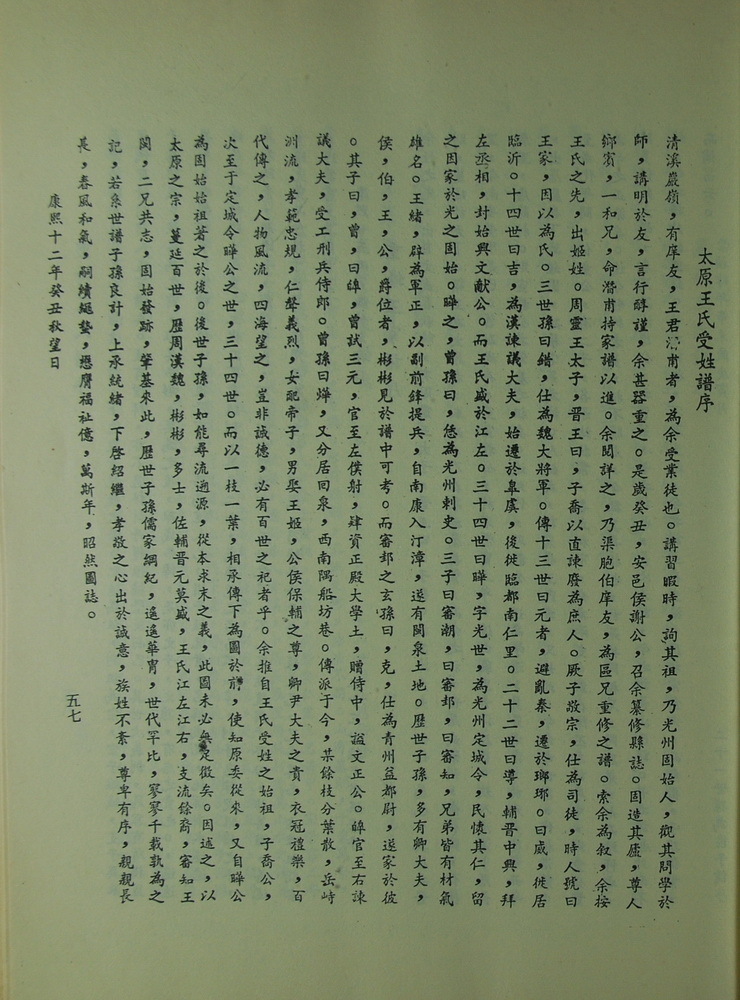 太原王氏受姓譜序
清溪巖嶺，有庠友，王君 甫者，為余受業徒也。講習暇時，詢其祖，乃光州固始人，觀其問學於
師，講明於友，言行醇謹，余甚器重之。是歲癸丑，安邑侯謝公，召余纂修縣誌。固造其廬，尊人
鄉賓，一和兄，命潛甫持家譜以進。余閱詳之，乃渠胞伯庠友，為區兄重修之譜。索余為叙，余按
王氏之先，出姬姓。周靈王太子，晉王曰，子喬以直諫廢為庶人。厥子敬宗，仕為司徒，時人號曰
王家，因以為氏。三世孫曰錯，仕為魏大將軍。傳十三世曰元者，避亂秦，遷於瑯琊。曰威，徙居
臨沂。十四世曰吉，為漢諫議大夫，始遷於臯虞，後徙臨都南仁里。二十二世曰導，輔晉中興，拜
左丞相，封始興文獻公。而王氏盛於江左。三十四世曰曄，字光世，為光州定城令，民懷其仁，留
之因家於光之固始。曄之，曾孫曰，恁為光州刺史。三子曰審潮，曰審邽，曰審知，兄弟皆有材氣
雄名。王緒，辟為軍正，以副前鋒提兵，自南康入汀漳，遂有閩泉土地。歷世子孫，多有卿大夫，
侯，伯，王，公，爵位者，彬彬見於譜中可考。而審邽之玄孫曰，克，仕為青州益都尉，遂家於彼
。其子曰，曾，曰皥，曾試三元，官至左僕射，肆資正殿大學士，贈侍中，謚文正公。皥官至右諫
議大夫，受工刑兵侍郎。曾孫曰燁，又分居回泉，西南隅船坊巷。傳派于今，某餘枝分葉散，岳峙
洲流，孝範忠規，仁聲義烈，女配帝子，男娶王姬，公侯保輔之尊，卿尹大夫之貴，衣冠禮樂，百
代傳之，人物風流，四海望之，豈非誠德，必有百世之祀者乎。余推自王氏受姓之始祖，子喬公，
次至于定城令曄公之世，三十四世。而以一枝一葉，相承傳下為圖於前，使知原委從來，又自曄公
為固始始祖著之於後。後世子孫，如能尋流遡源，從本求末之義，此圖未必無足徵矣。因述之，以
太原之宗，蔓延百世，歷周漢魏，彬彬，多士，佐輔晋元莫盛，王氏江左江右，支流餘裔，審知王
閩，二兄共志，固始發跡，肇基來此，歷世子孫儒家綱紀，遙遙華冑，世代罕比，寥寥千載孰為之
記，若系世譜子孫良計，上承統緒，下啓紹繼，孝敬之心出於誠意，族姓不紊，尊卑有序，親親長
長，春風和氣，嗣續繩蟄，懋膺福祉億，萬斯年，昭然圖誌。
康熙十二年癸丑秋望日
五七